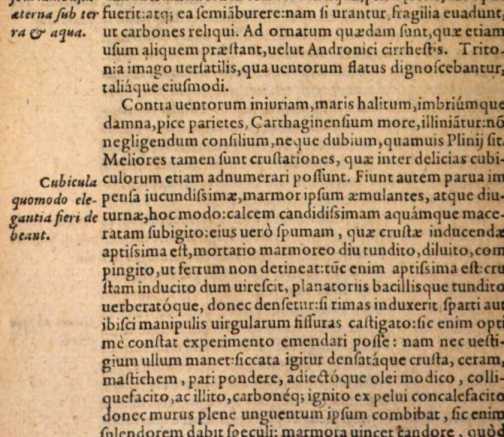 æterna sub ter
ra & aqua.
fuerit:atq; ea semiãburere:nam si urantur, fragilia euadunt
ut carbones reliqui. Ad ornatum quædam sunt,quæ etiam
usum aliquem præstant,uelut Andronici cirrhestes. Trito-
nia imago uersatilis,qua uentorum flatus dignoscebantur,
taliáque eiusmodi.
Contra uentorum iniuriam,maris halitum,imbriúmque
damna,pice parietes, Carthaginensium more,illiniãtur:nõ
negligendum consilium,neque dubium,quamuis Plinij sit.
Meliores tamen sunt crustationes, quæ inter delicias cubi-
culorum etiam adnumerari possunt. Fiunt autem parua im
pensa iucundissimæ,marmor ipsum æmulantes, atque diu-
turnæ,hoc modo:calcem candidissimam aquámque mace-
ratam subigito:eius uerò spumam , quæ crustæ inducendæ
aptissima est,mortario marmoreo diu tundito,diluito,com
pingito,ut ferrum non detineat:tũc enim aptissima est:cru
stam inducito dum uirescit, planatoriis bacillisque tundito
uerberatóque, donec densetur:si rimas induxerit sparti aut
ibisci manipulis uirgularum fissuras castigato:sic enim opti
mè constat experimento emendari posse : nam nec uesti-
gium ullum manet:siccata igitur densatáque crusta, ceram,
mastichem , pari pondere, adiectóque olei modico , colli-
quefacito,ac illito,carbonéq; ignito ex pelui concalefacito
donec murus plene unguentum ipsum combibat, sic enim
splendorem dabit speculi: marmora uincet candore , quòd
Cubicula
quomodo ele-
gantia fieri de
beant.